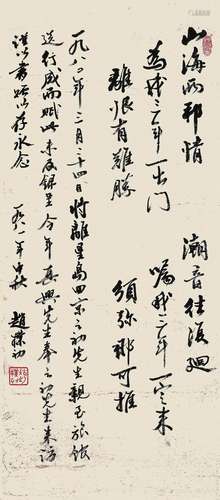 山海兩邦情 潮音往復迴
為我三年一出門 囑我三年一定來
離恨有難勝 須彌那可推
一九八〇年三月二十四日將離星島回京之初先生親至旅館
送行感而賦此未及錄呈今年真興先生奉之初先生來訪
謹以書贈以存永念 一九八一年中秋 趙樸初